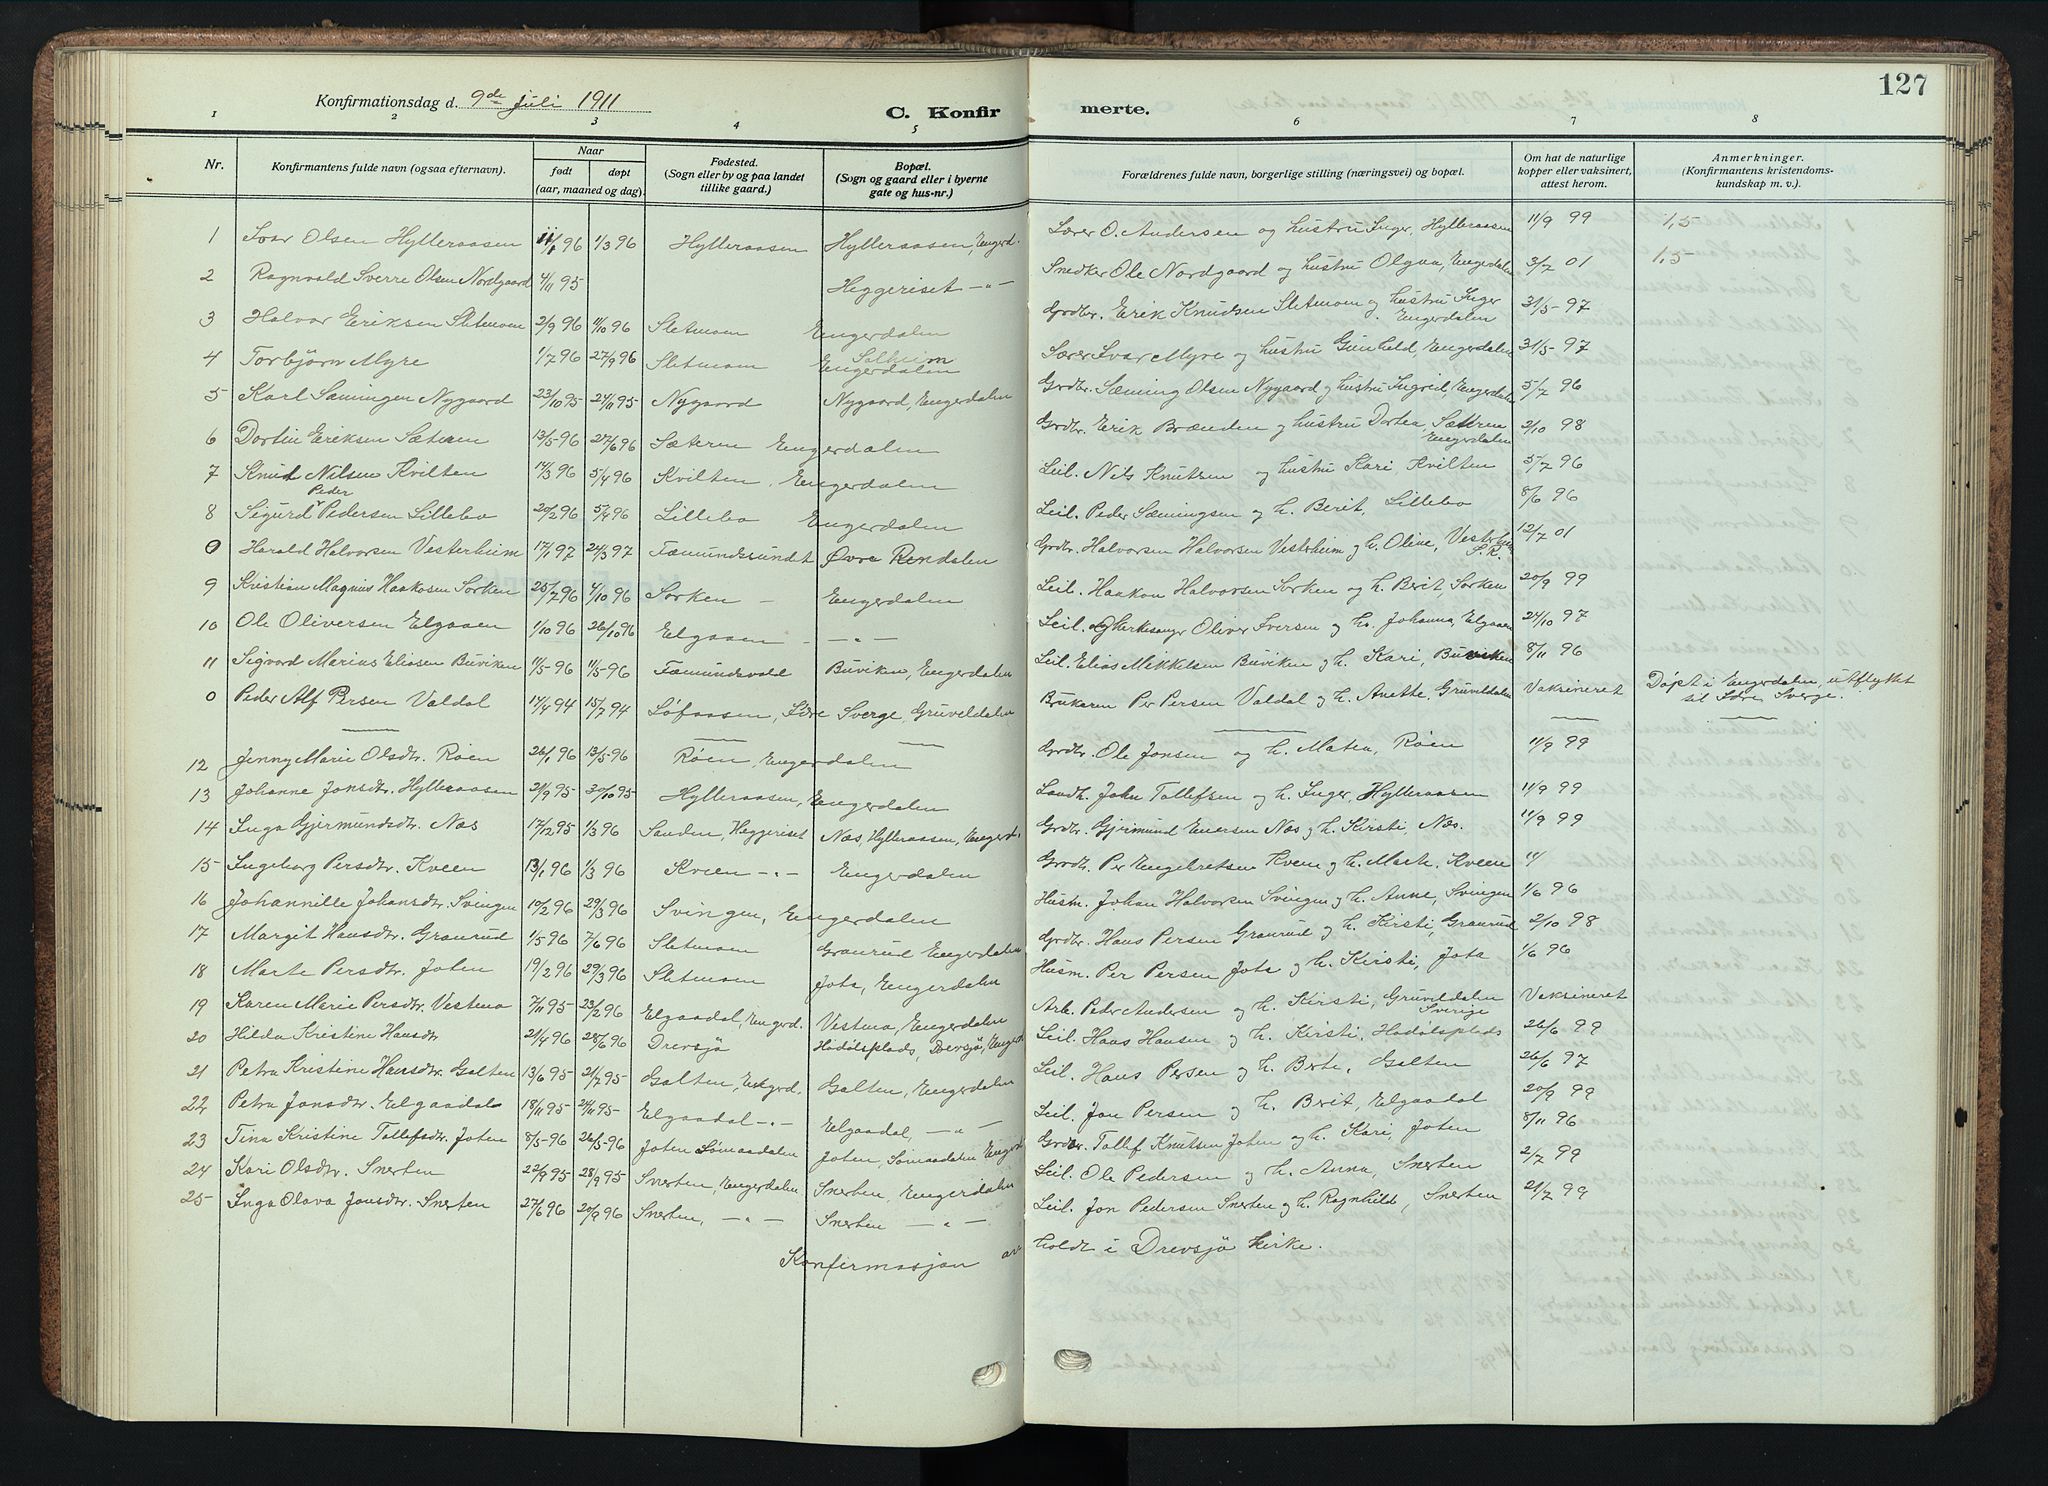 127
Konfirmationsdag d. 9de juli 1911
C. Konfir merte.
1 2 3 4 5 6 7 8
Nr. Konfirmantens fulde navn (ogsaa efternavn). Naar født døpt (aar, maaned og dag). Fødested. (Sogn eller by og paa landet tillike gaard.) Bopæl. (Sogn og gaard eller i byerne gate og hus-nr.) Forældrenes fulde navn, borgerlige stilling (næringsvei) og bopæl. Om hat de naturlige kopper eller vaksinert, attest herom. Anmerkninger. (Konfirmantens kristendomskundskap m. v.).
1 Ivar Olsen Hylleraasen 11/1 96 1/3 96 Hylleraasen Hylleraasen, Engerd. Særer O. Andersen og hustru Inger, Hylleraasen 11/9 99 1,5
2 Ragnvald Sverre Olsen Nordgaard 4/11 95 Heggeriset -"- Snedker Ole Nordgaard og hustru Olgua, Engerdalen 3/7 01 1,5
3 Halvor Eriksen Sletmoen 2/9 96 11/10 96 Sletmoen Engerdalen Grdbr. Erik Knudsen Sletmoen og hustru Inger Engerdalen 31/5 97
4 Torbjørn Myre 1/7 96 27/9 96 Sletmoen Solheim Engerdalen Særer Ivar Myre og hustru Gunhild, Engerdalen 31/5 97
5 Karl Sæmingen Nygaard 23/10 95 24/11 95 Nygaard Nygaard, Engerdalen Grdbr. Sæming Olsen Nygaard og hustru Ingrid, Engerdalen 5/7 96
6 Dortin Eriksen Sæteren 13/5 96 27/6 96 Sæteren Engerdalen Grdbr. Erik Brænden og hustru Dortea, Sætren Engerdalen 2/10 98
7 Knud Nilsen Kvilten 14/3 96 5/4 96 Kvilten, Engerdalen Leil. Nils Knutsen og hustru Kari, Kvilten 5/7 96
8 Sigurd Peder Pedersen Lillebo 20/2 96 5/4 96 Lillebo Engerdalen Leil. Peder Sæmingsen og h. Berit, Lillebo 8/6 96
0 Harald Halvorsen Vesterheim 17/1 97 24/3 97 Fæmundsundet Øvre Rendalen Grdbr. Halvorsen Halvorsen Vestrheim og h. Oline, Vestrheim S.R. 12/7 01
9 Kristian Magnus Haakosen Sorken 25/7 96 4/10 96 Sorken - Engerdalen Leil. Haakon Halvorsen Sorken og h. Berit, Sorken 20/9 99
10 Ole Oliversen Elgaaen 1/10 96 26/10 96 Elgaaen - -"- Leil. og Kirkesanger Oliver Iversen og h. Johanna, Elgaaen 24/10 97
11 Sigvard Marius Eliasen Buviken 11/5 96 11/5 96 Fæmundsvold Buviken, Engerdalen Leil. Elias Mikkelsen Buviken og h. Kari, Buviken 8/11 96
0 Peder Alf Persen Valdal 17/4 94 15/7 94 Løfaasen, Idre Sverge, Gruveldalen Brukaren Per Persen Valdal og h. Anette, Gruveldalen Vaksineret Døpt i Engerdalen, utflyttet til Idre Sverge.
12 Jenny Marie Olsdtr. Røen 26/1 96 13/5 96 Røen, Engerdalen Grdbr. Ole Jonsen og h. Matea, Røen 11/9 99
13 Johanne Jonsdtr. Hylleraasen 21/9 95 30/10 95 Hylleraasen, Engerdalen Landh. John Tollefsen og h. Inger, Hylleraasen 11/9 99
14 Inga Gjermundsdtr. Næs 17/12 95 1/3 96 Sanden, Heggeriset Næs, Hylleraasen, Engerd. Grdbr. Gjermund Enersen Næs og h. Kirsti, Næs. 11/9 99
15 Ingeborg Persdtr. Kveen 13/1 96 1/3 96 Kveen -"- Engerdalen Grdbr. Per Engebretsen Kveen og h. Marte, Kveen 11/
16 Johannille Johansdtr. Svingen 10/2 96 29/3 96 Svingen, Engerdalen Husm. Johan Halvorsen Svingen og h. Anne, Svingen 1/6 96
17 Margit Hansdtr. Graurud 1/5 96 7/6 96 Sletmoen Graurud Engerdalen Grdbr. Hans Persen Graurud og h. Kirsti, Graurud 2/10 98
18 Marte Persdtr. Joten 19/2 96 29/3 96 Sletmoen Jota, Engerdalen Husm. Per Persen Jota og h. Kirsti, Jota 1/6 96
19 Karen Marie Persdtr. Vestmo 7/11 95 23/2 96 Elgaadal, Engerd. Vestmo, Engerdalen Arb. Peder Andersen og h. Kirsti, Gruveldalen Sverige Vaksineret
20 Hilda Kristine Hansdtr 21/4 96 28/6 96 Drevsjø Hådålsplads, Drevsjø, Engerd Leil. Hans Hansen og h. Kirsti, Hådålsplads 26/6 99
21 Petra Kristine Hansdtr. Galten 13/6 95 21/7 95 Galten, Engerd. Galten, Engerdalen Leil. Hans Persen og h. Berte, Galten 26/6 97
22 Petra Jonsdtr. Elgaadal 18/11 95 24/11 95 Elgaadal -"- Elgaadal, -"- Leil. Jon Persen og h. Brit, Elgaadal 20/9 99
23 Tina Kristine Tollefsdtr. Joten 8/5 96 26/5 96 Joten Sømaadalen Joten, Sømaadalen Engerd Grdbr. Tollef Knutsen Joten og h. Kari, Joten 8/11 96
24 Kari Olsdtr. Snerten 22/9 95 28/9 95 Snerten, Engerdalen Snerten, Engerdalen Leil. Ole Pedersen og h. Anna, Snerten 2/7 99
25 Inga Olava Jonsdtr. Snerten 27/6 96 20/9 96 Snerten, -"- Snerten -"- Leil. Jon Pedersen Snerten og h. Ragnhild, Snerten 21/7 99
Konfirmasjon av holdt i Drevsjø kirke.